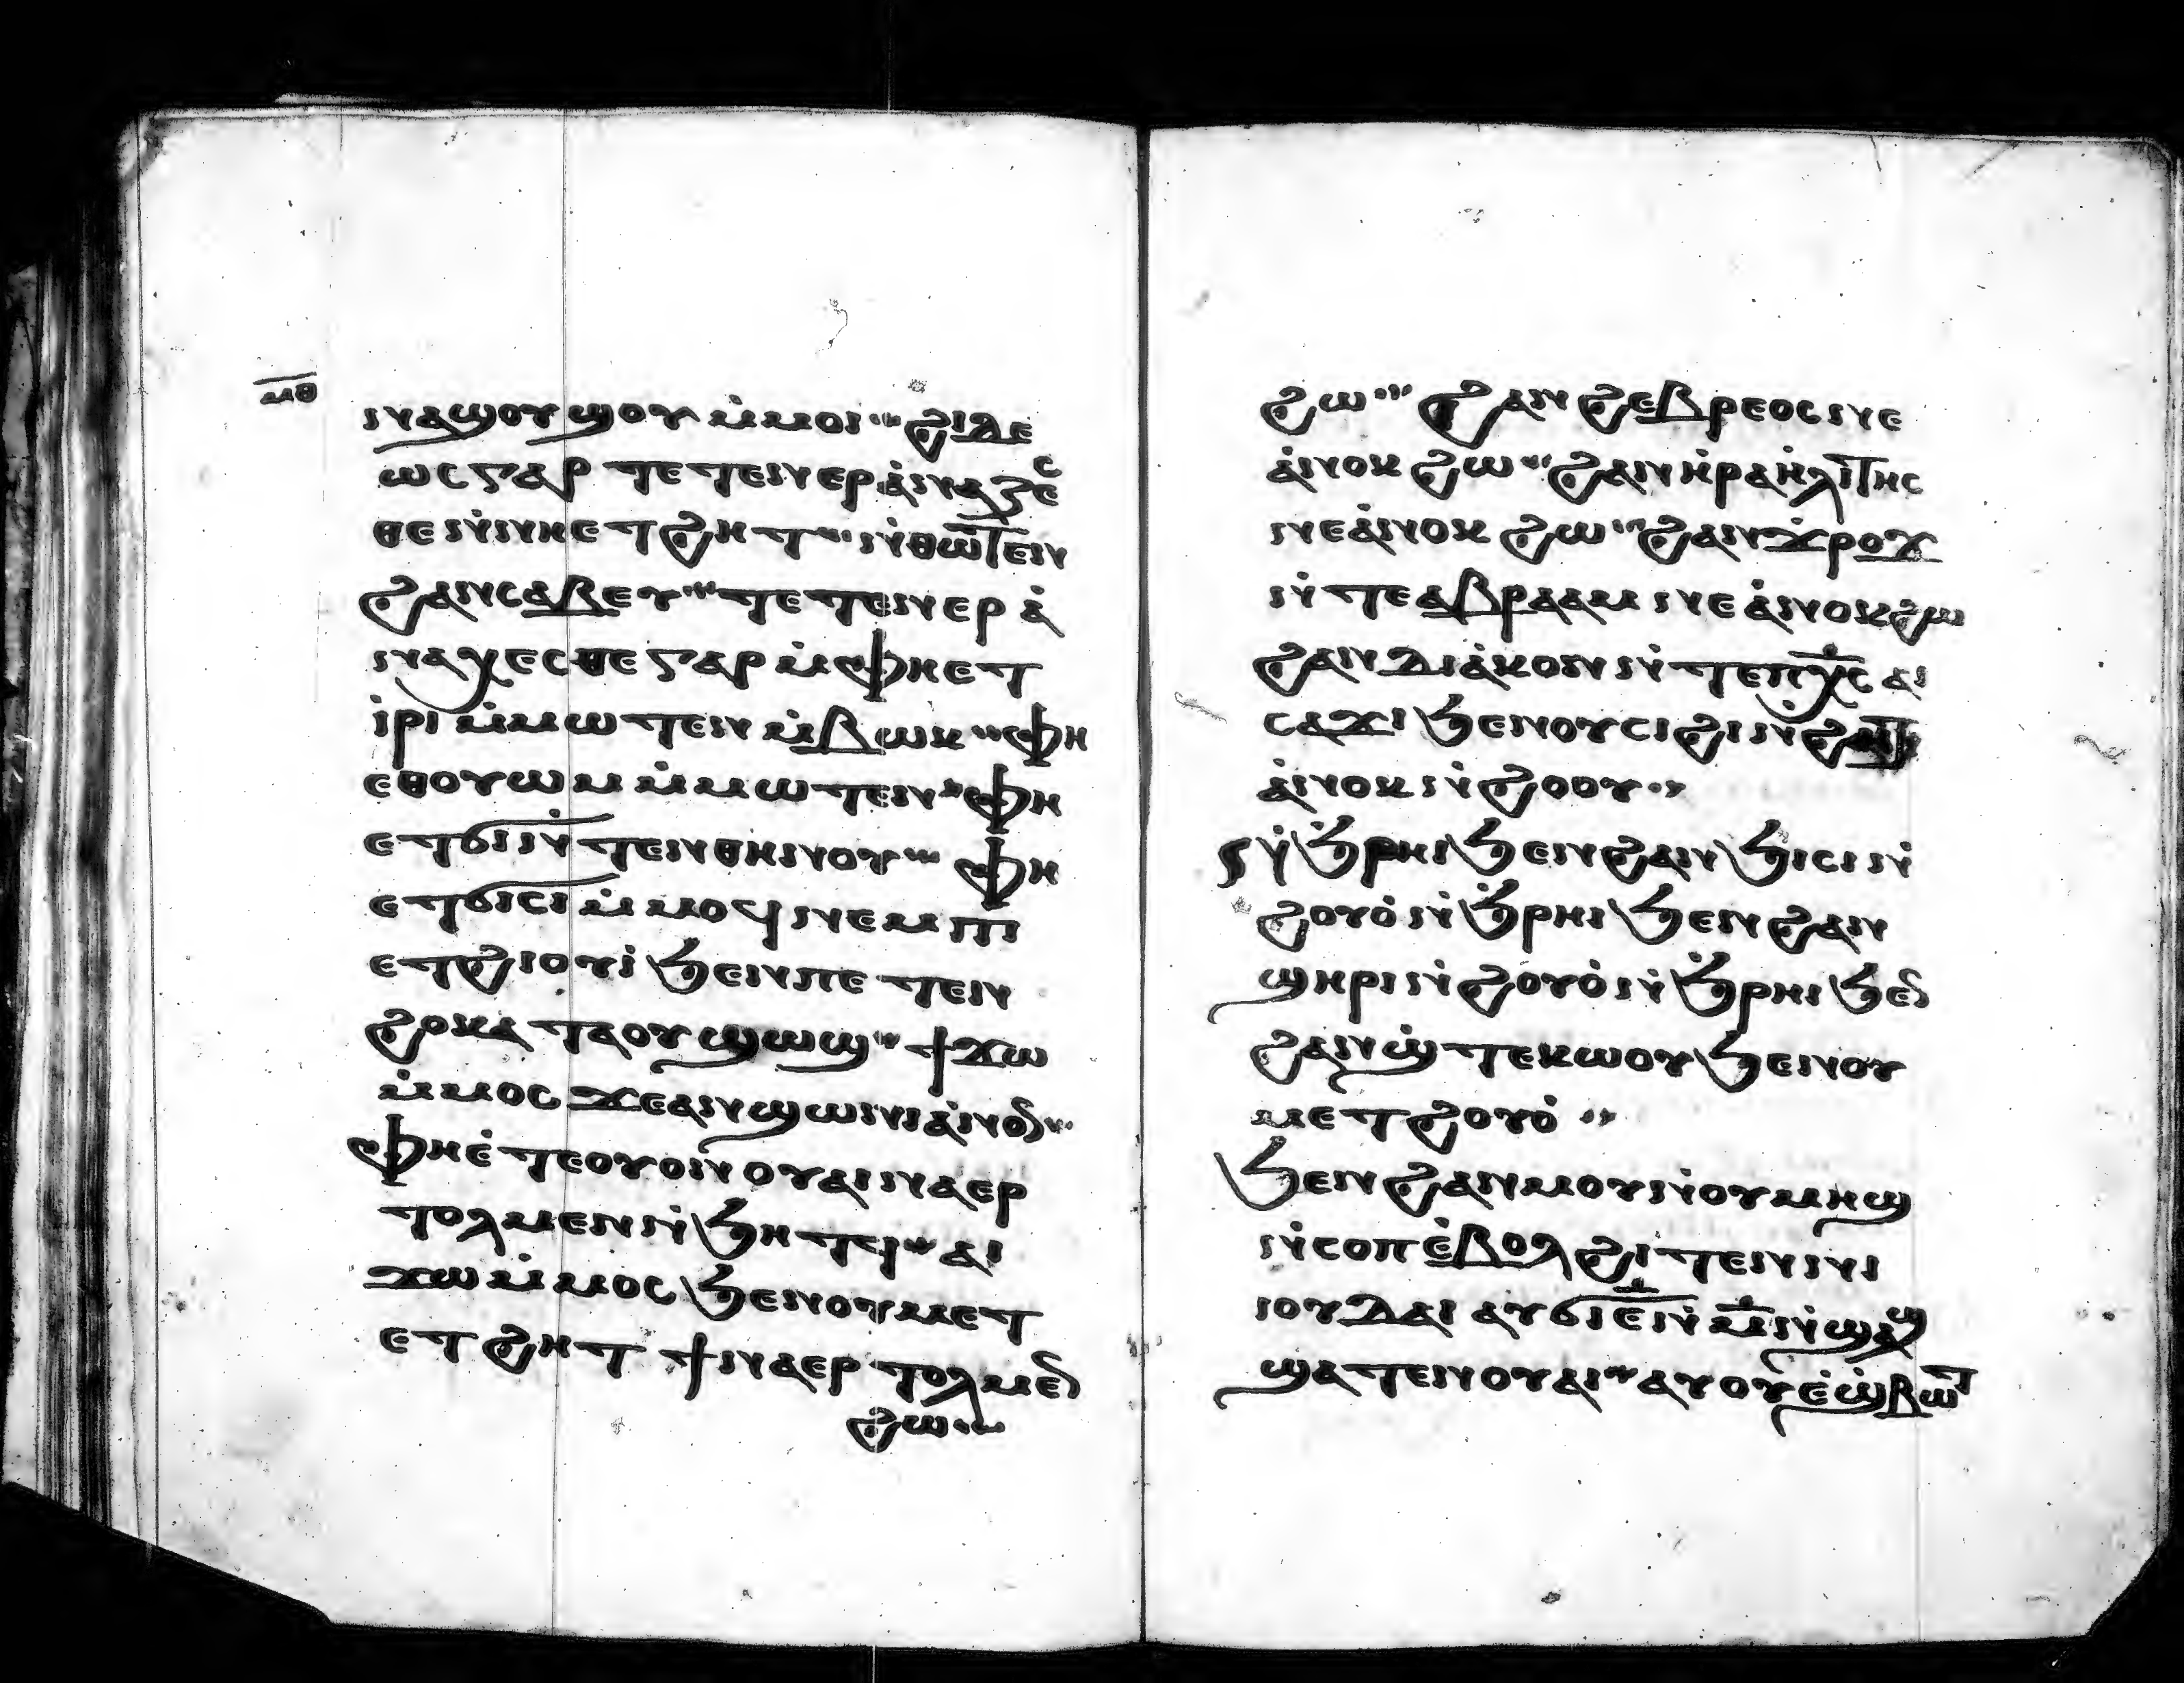 ⲙⲑ
ⲛⲁϣⲟⲩϣⲟⲩ ⲙ̇ⲙⲟⲓ ϩⲓⲇⲉ
ⲱⲥ ⲅⲁⲣ ⲧⲉⲧⲉⲛⲉⲣⲁ̇ⲛⲁⲝⲉⲥ
ⲑⲉ ⲛ̇ⲛⲓⲉⲧϩⲏⲧ ⲛ̇ⲑⲱⲧⲉⲛ
ϩⲁⲛⲥⲁⲃⲉⲩ ⲧⲉⲧⲉⲛⲉⲣⲁ̇
ⲛⲁⲭⲉⲥⲑⲉ ⲅⲁⲣ ⲙ̇ⲫⲏⲉⲧ
ⲓ̇ⲣⲓ ⲙ̇ⲙⲱⲧⲉⲛ ⲙ̇ⲃⲱⲕ ⲫⲏ
ⲉⲑⲟⲩⲱⲙ ⲙ̇ⲙⲱⲧⲉⲛ ⲫⲏ
ⲉⲧϭⲓ ⲛ̇ⲧⲉⲛⲑⲏⲛⲟⲩ ⲫⲏ
ⲉⲧϭⲓⲥⲓ ⲙ̇ⲙⲟϥ ⲛⲉⲙ ⲡⲓ
ⲉⲧϩⲓⲟⲩⲓ̇ ϧⲉⲛ ⲡⲉⲧⲉⲛ
ϩⲟ ⲕⲁⲧⲁ ⲟⲩϣⲱϣ ϯϫⲱ
ⲙ̇ⲙⲟⲥ ϫⲉ ⲁⲛϣⲱⲛⲓ ⲁ̇ⲛⲟⲛ
ⲫⲏⲉ̇ⲧⲉ ⲟⲩⲟⲛ ⲟⲩⲁⲓ ⲛⲁⲉⲣ
ⲧⲟⲗⲙⲉⲛ ⲛ̇ϧⲏⲧϥ ⲁⲓ
ϫⲱ ⲙ̇ⲙⲟⲥ ϧⲉⲛ ⲟⲩⲙⲉⲧ
ⲉⲧϩⲏⲧ ϯⲛⲁⲉⲣⲧⲟⲗⲙⲉⲛ
ϩⲱ
ϩⲱ ϩⲁⲛϩⲉⲃⲣⲉⲟⲥ ⲛⲉ
ⲁ̇ⲛⲟⲕ ϩⲱ ϩⲁⲛⲏ̇ⲣⲁⲏ̇ⲗⲓⲧⲏⲥ
ⲛⲉ ⲁ̇ⲛⲟⲕ ϩⲱ ϩⲁⲛϫ̇ⲣⲟϫ
ⲛ̇ⲧⲉ ⲁⲃⲣⲁⲁⲙ ⲛⲉ ⲁ̇ⲛⲟⲕ ϩⲱ
ϩⲁⲛⲇⲓⲁ̇ⲕⲟⲛ ⲛ̇ⲧⲉ ⲡⲭⲥ ⲁⲓ
ⲥⲁϫⲓ ϧⲉⲛ ⲟⲩⲥⲓϩⲓ ⲛ̇ϩⲏⲧ
ⲁ̇ⲛⲟⲕ ⲛ̇ϩⲟⲩⲟ̇
ⲛ̇ϧ̇ⲣⲏⲓ ϧⲉⲛ ϩⲁⲛϧⲓⲥⲓ ⲛ̇
ϩⲟⲩⲟ̇ ⲛ̇ϧ̇ⲣⲏⲓ ϧⲉⲛ ϩⲁⲛ
ϣⲏⲣⲓ ⲛ̇ϩⲟⲩⲟ̇ ⲛ̇ϧ̇ⲣⲏⲓ ϧⲉⲛ
ϩⲁⲛϣ̇ⲧⲉⲕⲱⲟⲩ ϧⲉⲛ ⲟⲩ
ⲙⲉⲧϩⲟⲩⲟ̇
ϧⲉⲛ ϩⲁⲛⲙⲟⲩ ⲛ̇ⲟⲩⲙⲏϣ
ⲛ̇ⲥⲟⲡ ⲉ̇ⲃⲟⲗ ϩⲓⲧⲉⲛ ⲛⲓ
ⲓⲟⲩⲇⲁⲓ ⲁⲩϭⲓ ⲉ̅ ⲛ̇ⲙ̅ ⲛ̇ϣⲁϣ
ϣⲁⲧⲉⲛ ⲟⲩⲁⲓ ⲁⲩⲟⲩⲉ̇ϣ̇ⲃⲱⲧ